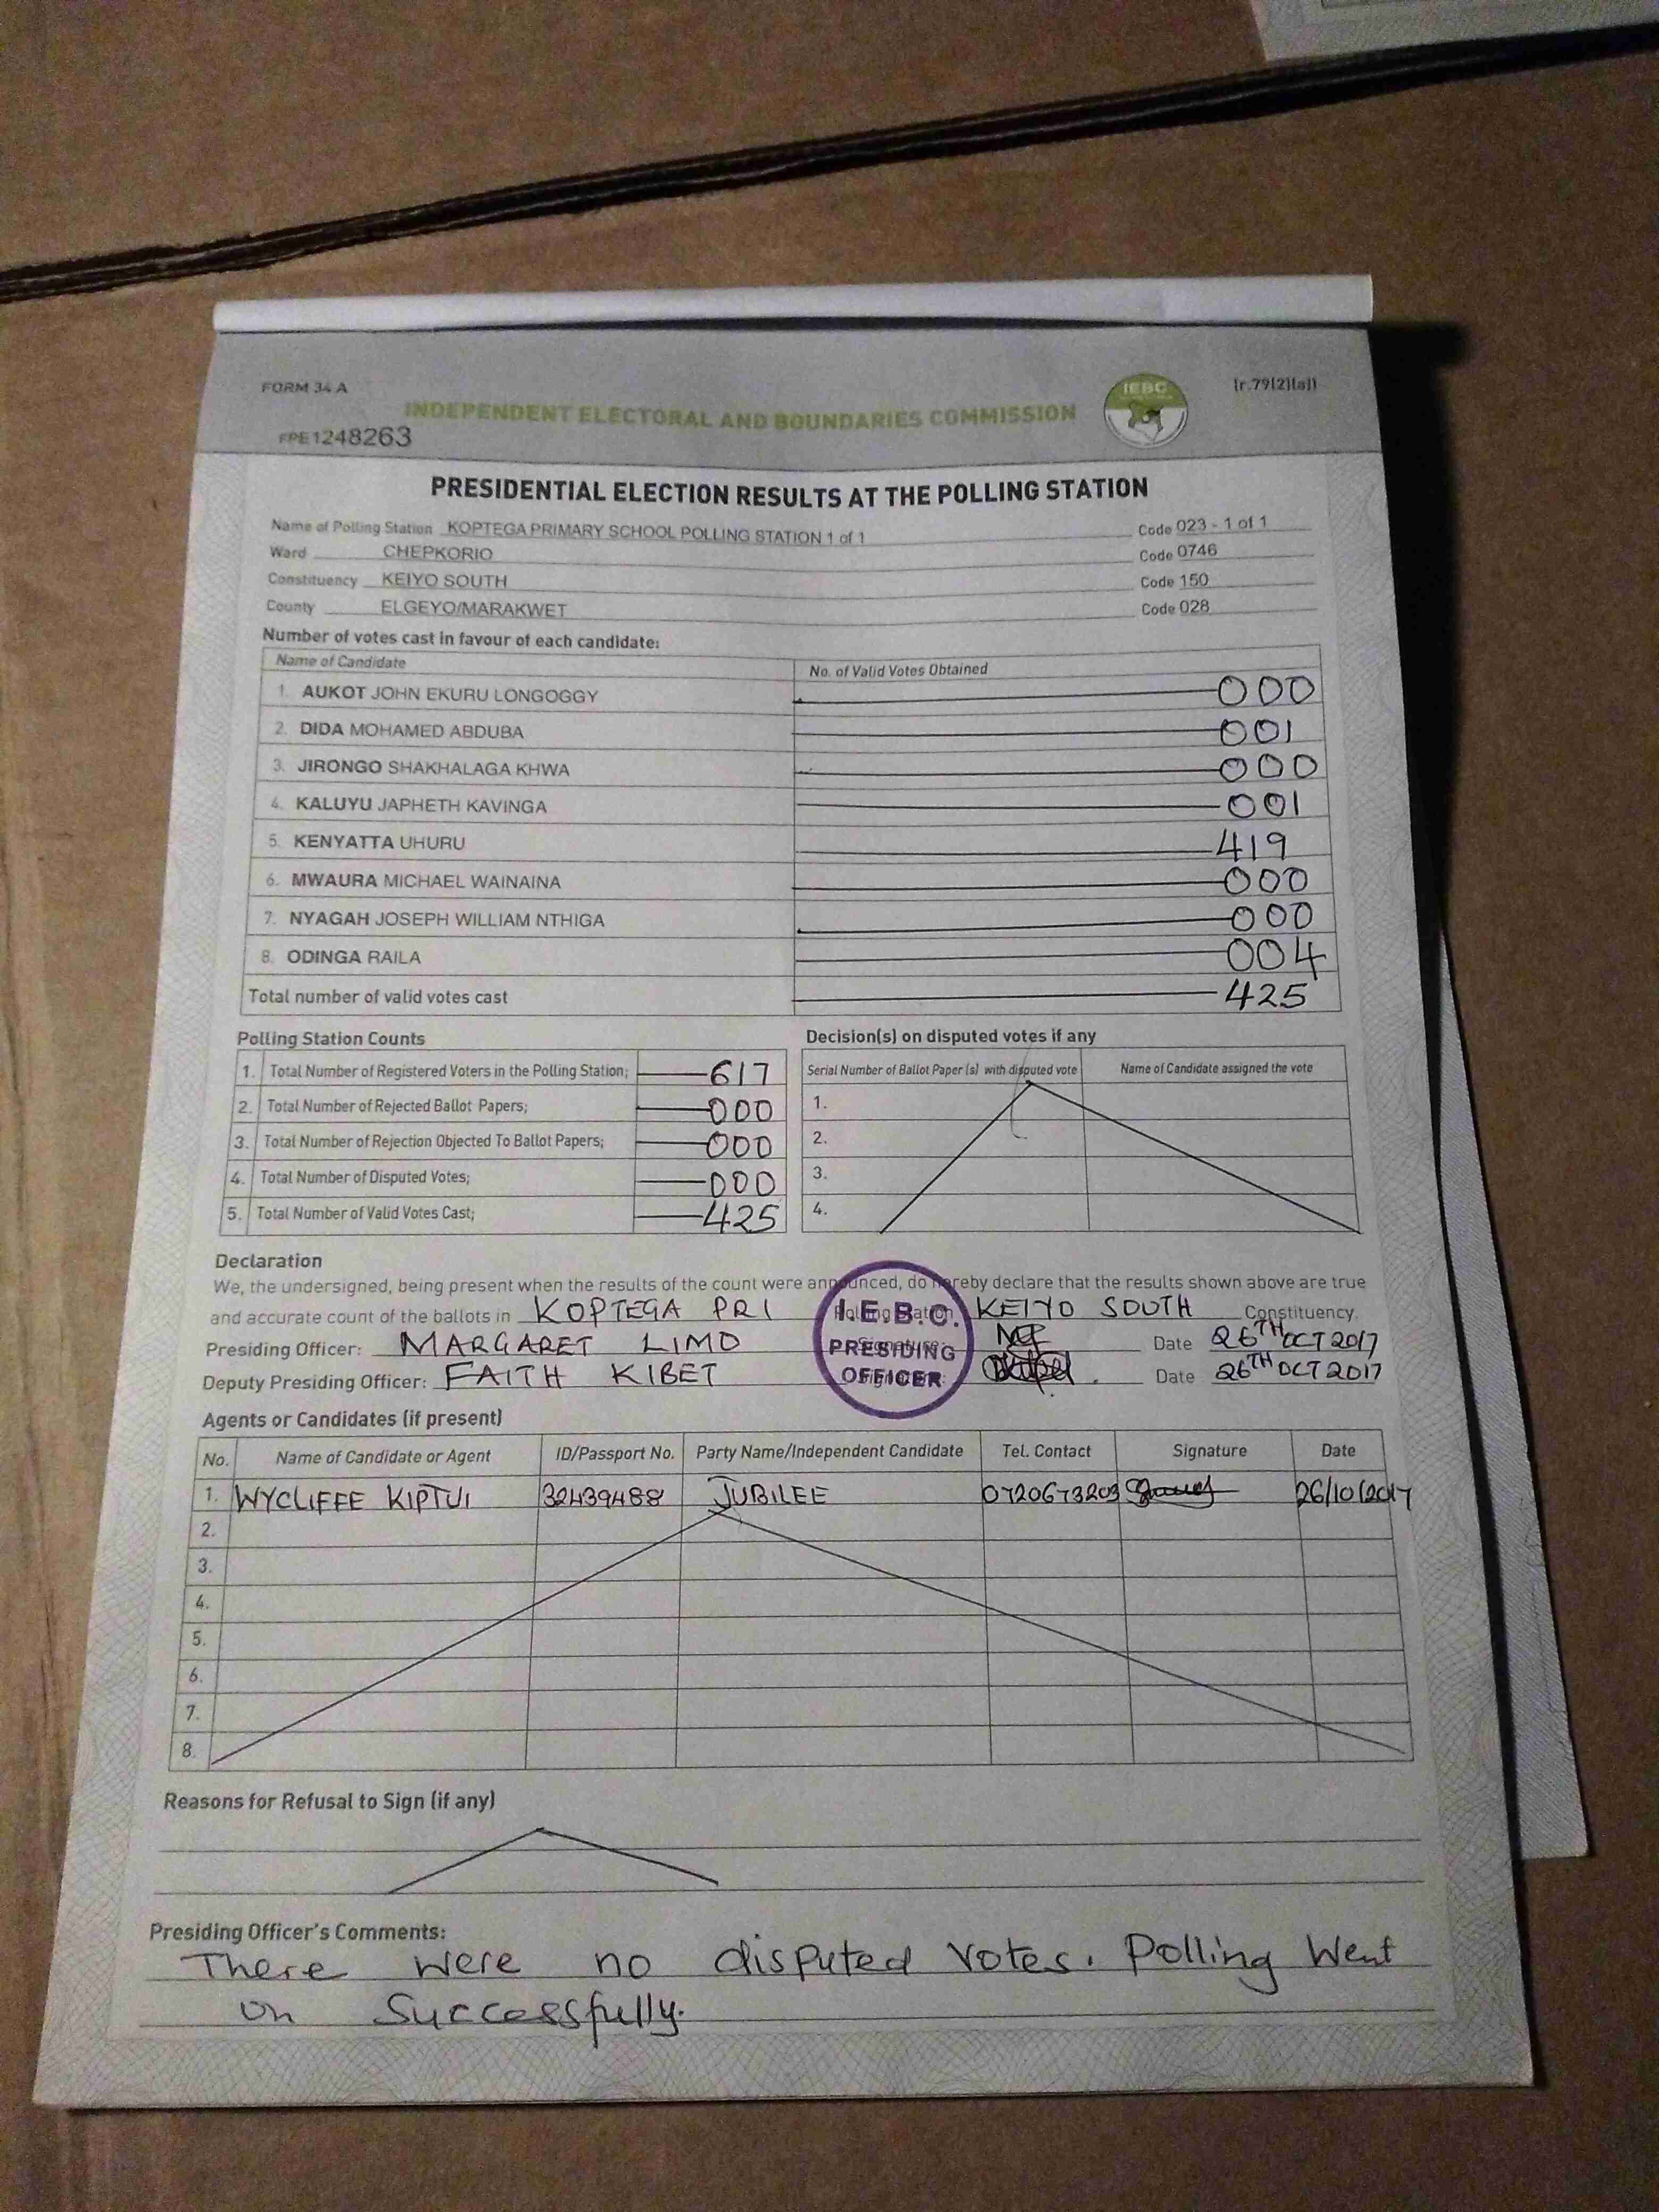 FORM 34 A
IEBC
[r.79(2)(a)]
INDEPENDENT ELECTORAL AND BOUNDARIES COMMISSION
FPE1248263
PRESIDENTIAL ELECTION RESULTS AT THE POLLING STATION
Name of Polling Station KOPTEGA PRIMARY SCHOOL POLLING STATION 1 of 1 Code 023 - 1 of 1
Ward CHEPKORIO Code 0746
Constituency KEIYO SOUTH Code 150
County ELGEYO/MARAKWET Code 028
Number of votes cast in favour of each candidate:
Name of Candidate No. of Valid Votes Obtained
1. AUKOT JOHN EKURU LONGOGGY 000
2. DIDA MOHAMED ABDUBA 001
3. JIRONGO SHAKHALAGA KHWA 000
4. KALUYU JAPHETH KAVINGA 001
5. KENYATTA UHURU 419
6. MWAURA MICHAEL WAINAINA 000
7. NYAGAH JOSEPH WILLIAM NTHIGA 000
8. ODINGA RAILA 004
Total number of valid votes cast 425
Polling Station Counts
1. Total Number of Registered Voters in the Polling Station; 617
2. Total Number of Rejected Ballot Papers; 000
3. Total Number of Rejection Objected To Ballot Papers; 000
4. Total Number of Disputed Votes; 000
5. Total Number of Valid Votes Cast; 425
Decision(s) on disputed votes if any
Serial Number of Ballot Paper (s) with disputed vote Name of Candidate assigned the vote
1.
2.
3.
4.
Declaration
We, the undersigned, being present when the results of the count were announced, do hereby declare that the results shown above are true
and accurate count of the ballots in KOPTEGA PRI Polling Station KEIYO SOUTH Constituency.
Presiding Officer: MARGARET LIMO Signature: Date 26TH OCT 2017
Deputy Presiding Officer: FAITH KIBET Signature: Date 26TH OCT 2017
I.E.B.C.
PRESIDING
OFFICER
Agents or Candidates (if present)
No. Name of Candidate or Agent ID/Passport No. Party Name/Independent Candidate Tel. Contact Signature Date
1. WYCLIFFE KIPTUI 32439488 JUBILEE 0720673203 26/10/2017
2.
3.
4.
5.
6.
7.
8.
Reasons for Refusal to Sign (if any)
Presiding Officer's Comments:
There were no disputed votes. Polling Went
on Successfully.